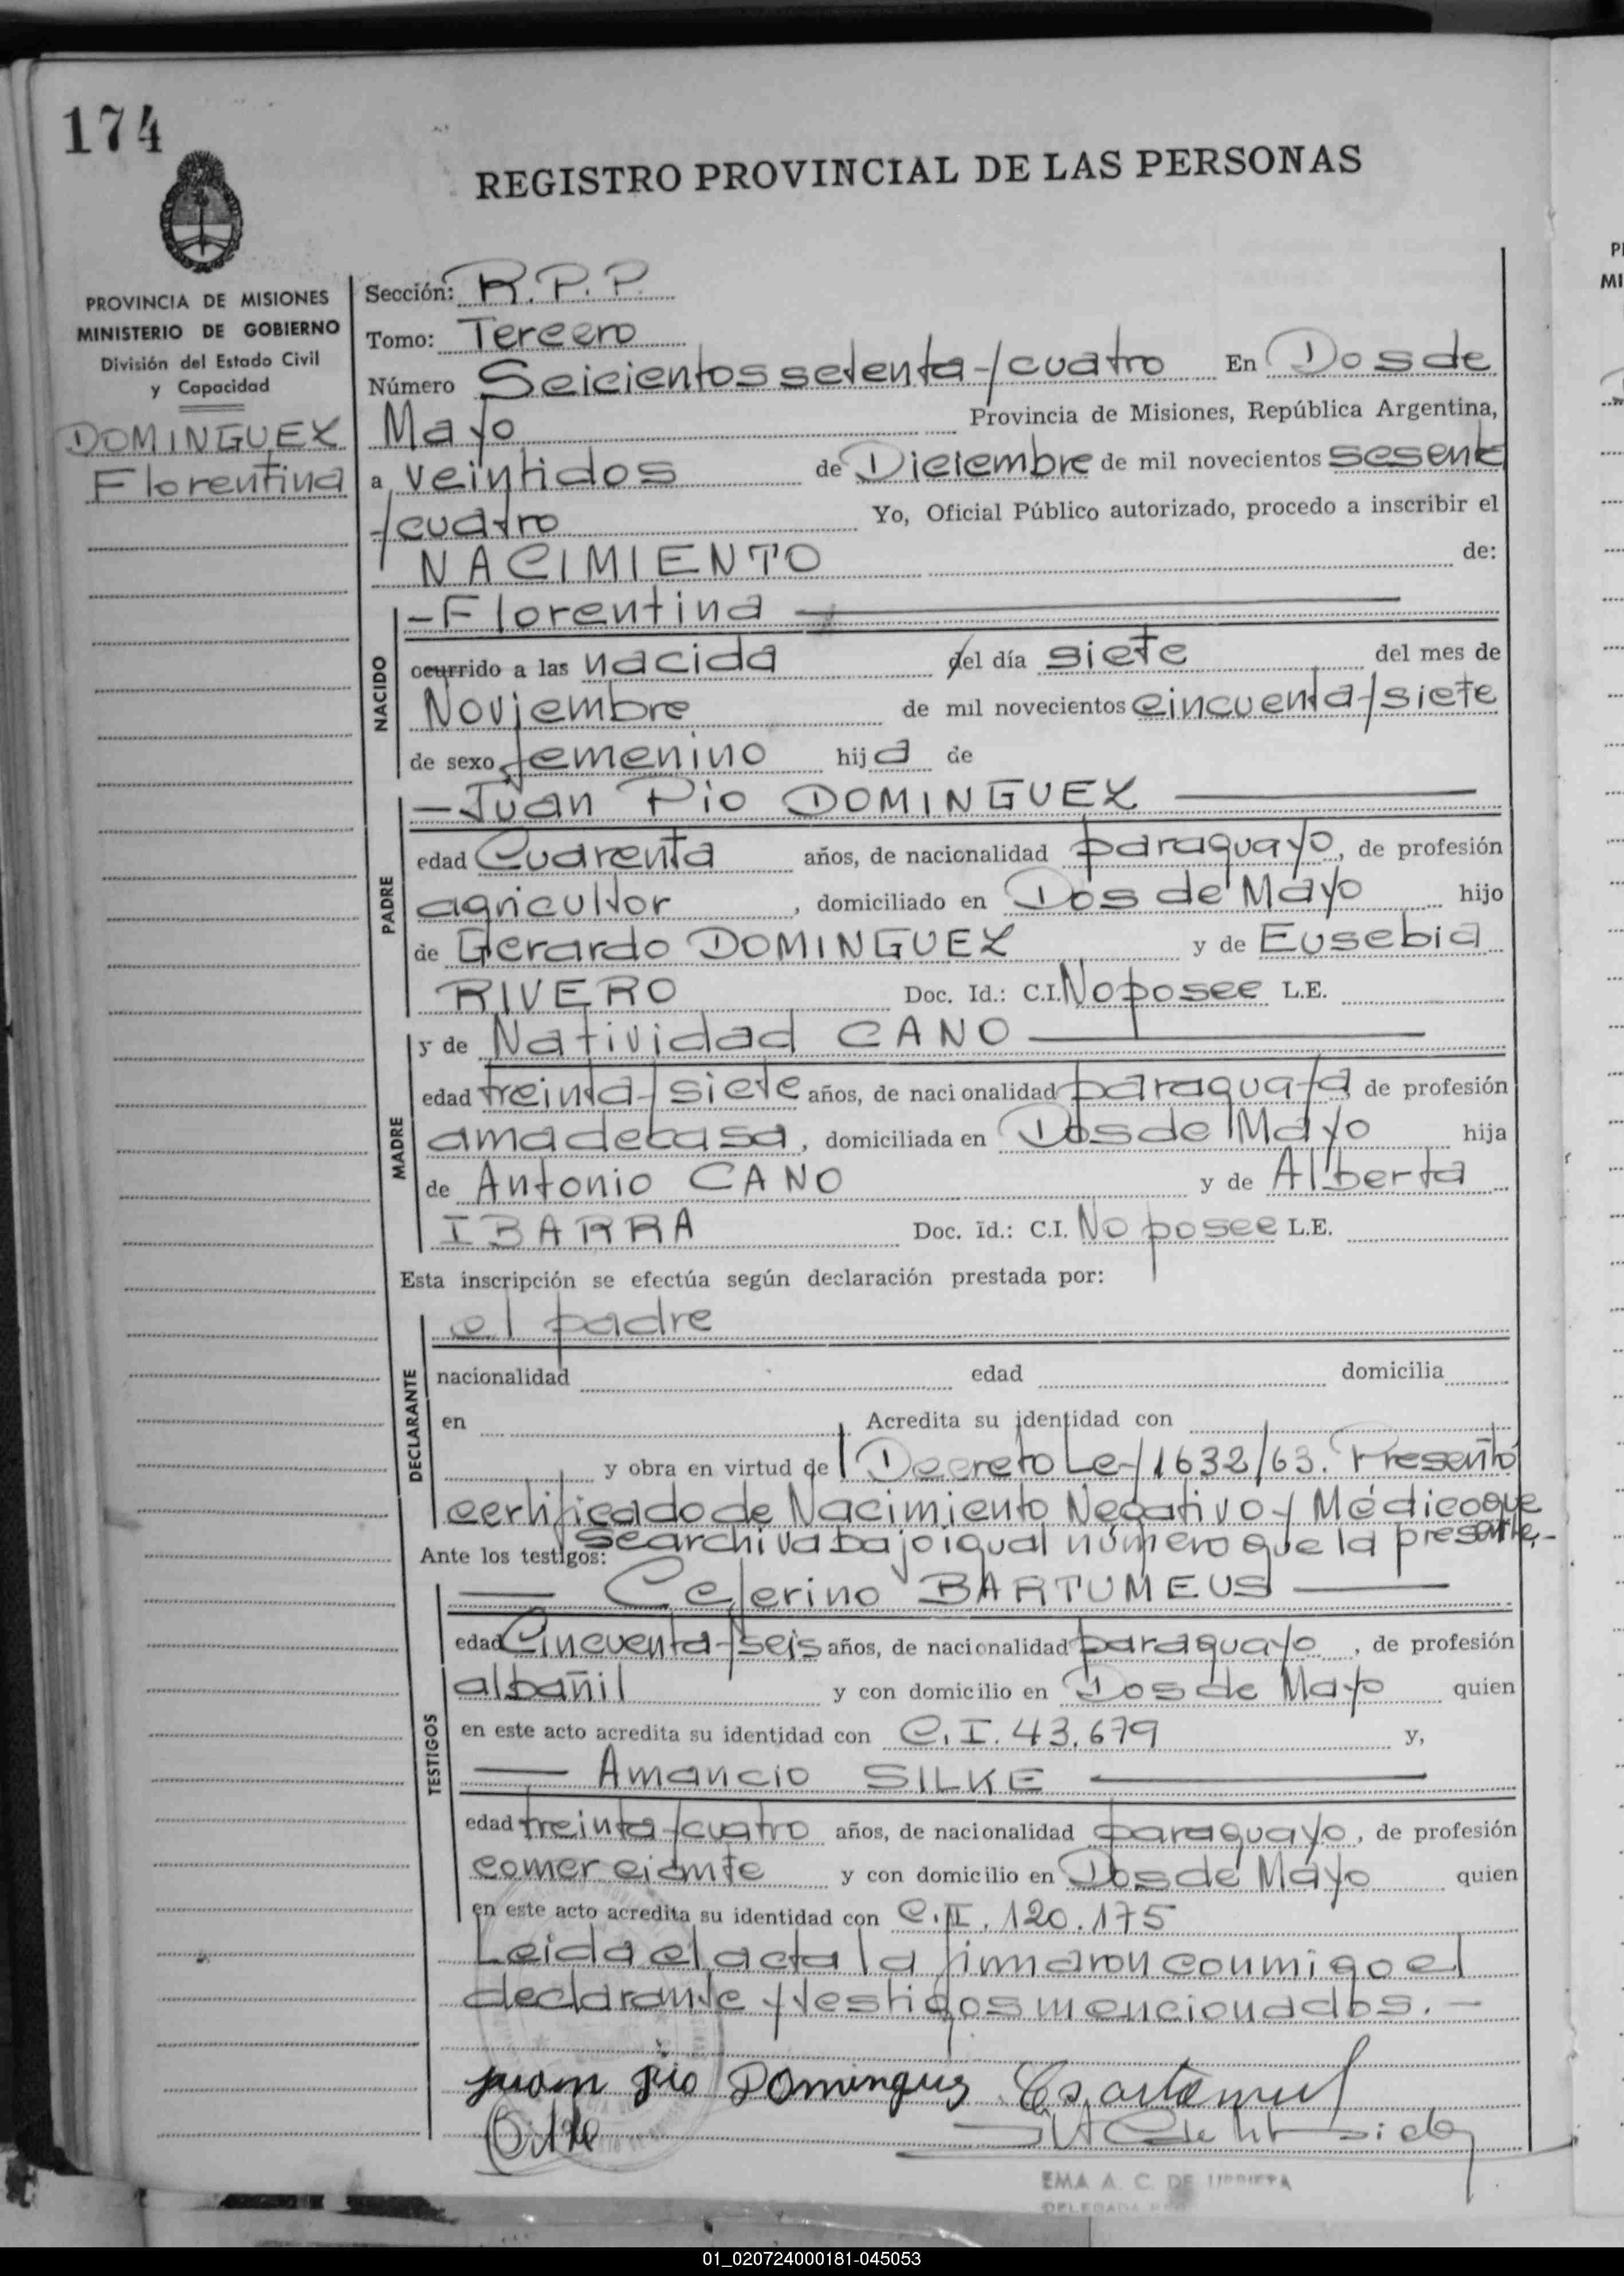 174
REGISTRO PROVINCIAL DE LAS PERSONAS
PROVINCIA DE MISIONES
MINISTERIO DE GOBIERNO
División del Estado Civil
y Capacidad
DOMINGUEZ
Florentina
Sección: R.P.P.
Tomo: Tercero
Número Seicientos setenta y cuatro En Dos de
Mayo Provincia de Misiones, República Argentina,
a veintidos de Diciembre de mil novecientos sesenta
y cuatro Yo, Oficial Público autorizado, procedo a inscribir el
NACIMIENTO de:
NACIDO
- Florentina
ocurrido a las nacida del día siete del mes de
Noviembre de mil novecientos cincuenta y siete
de sexo femenino hija de
PADRE
- Juan Pio DOMINGUEZ
edad Cuarenta años, de nacionalidad paraguayo, de profesión
agricultor, domiciliado en Dos de Mayo hijo
de Gerardo DOMINGUEZ y de Eusebia
RIVERO Doc. Id.: C.I. No posee L.E.
MADRE
y de Natividad CANO
edad treinta y siete años, de nacionalidad paraguaya, de profesión
ama de casa, domiciliada en Dos de Mayo hija
de Antonio CANO y de Alberta
IBARRA Doc. Id.: C.I. No posee L.E.
Esta inscripción se efectúa según declaración prestada por:
DECLARANTE
el padre
nacionalidad edad domicilia
en Acredita su identidad con
y obra en virtud de Decreto Ley 1632/63. Presentó
certificado de Nacimiento Negativo y Médico que
se archiva bajo igual número que la presente.-
Ante los testigos:
TESTIGOS
Ceferino BARTUMEUS
edad Cincuenta y seis años, de nacionalidad paraguayo, de profesión
albañil y con domicilio en Dos de Mayo quien
en este acto acredita su identidad con C.I. 43.679 y,
Amancio SILKE
edad treinta y cuatro años, de nacionalidad paraguayo, de profesión
comerciante y con domicilio en Dos de Mayo quien
en este acto acredita su identidad con C.I. 120.175
Leida el acta la firmaron conmigo el
declarante y testigos mencionados.-
Juan Pio Dominguez
EMA A. C. DE URRIETA
DELEGADA
01_020724000181-045053